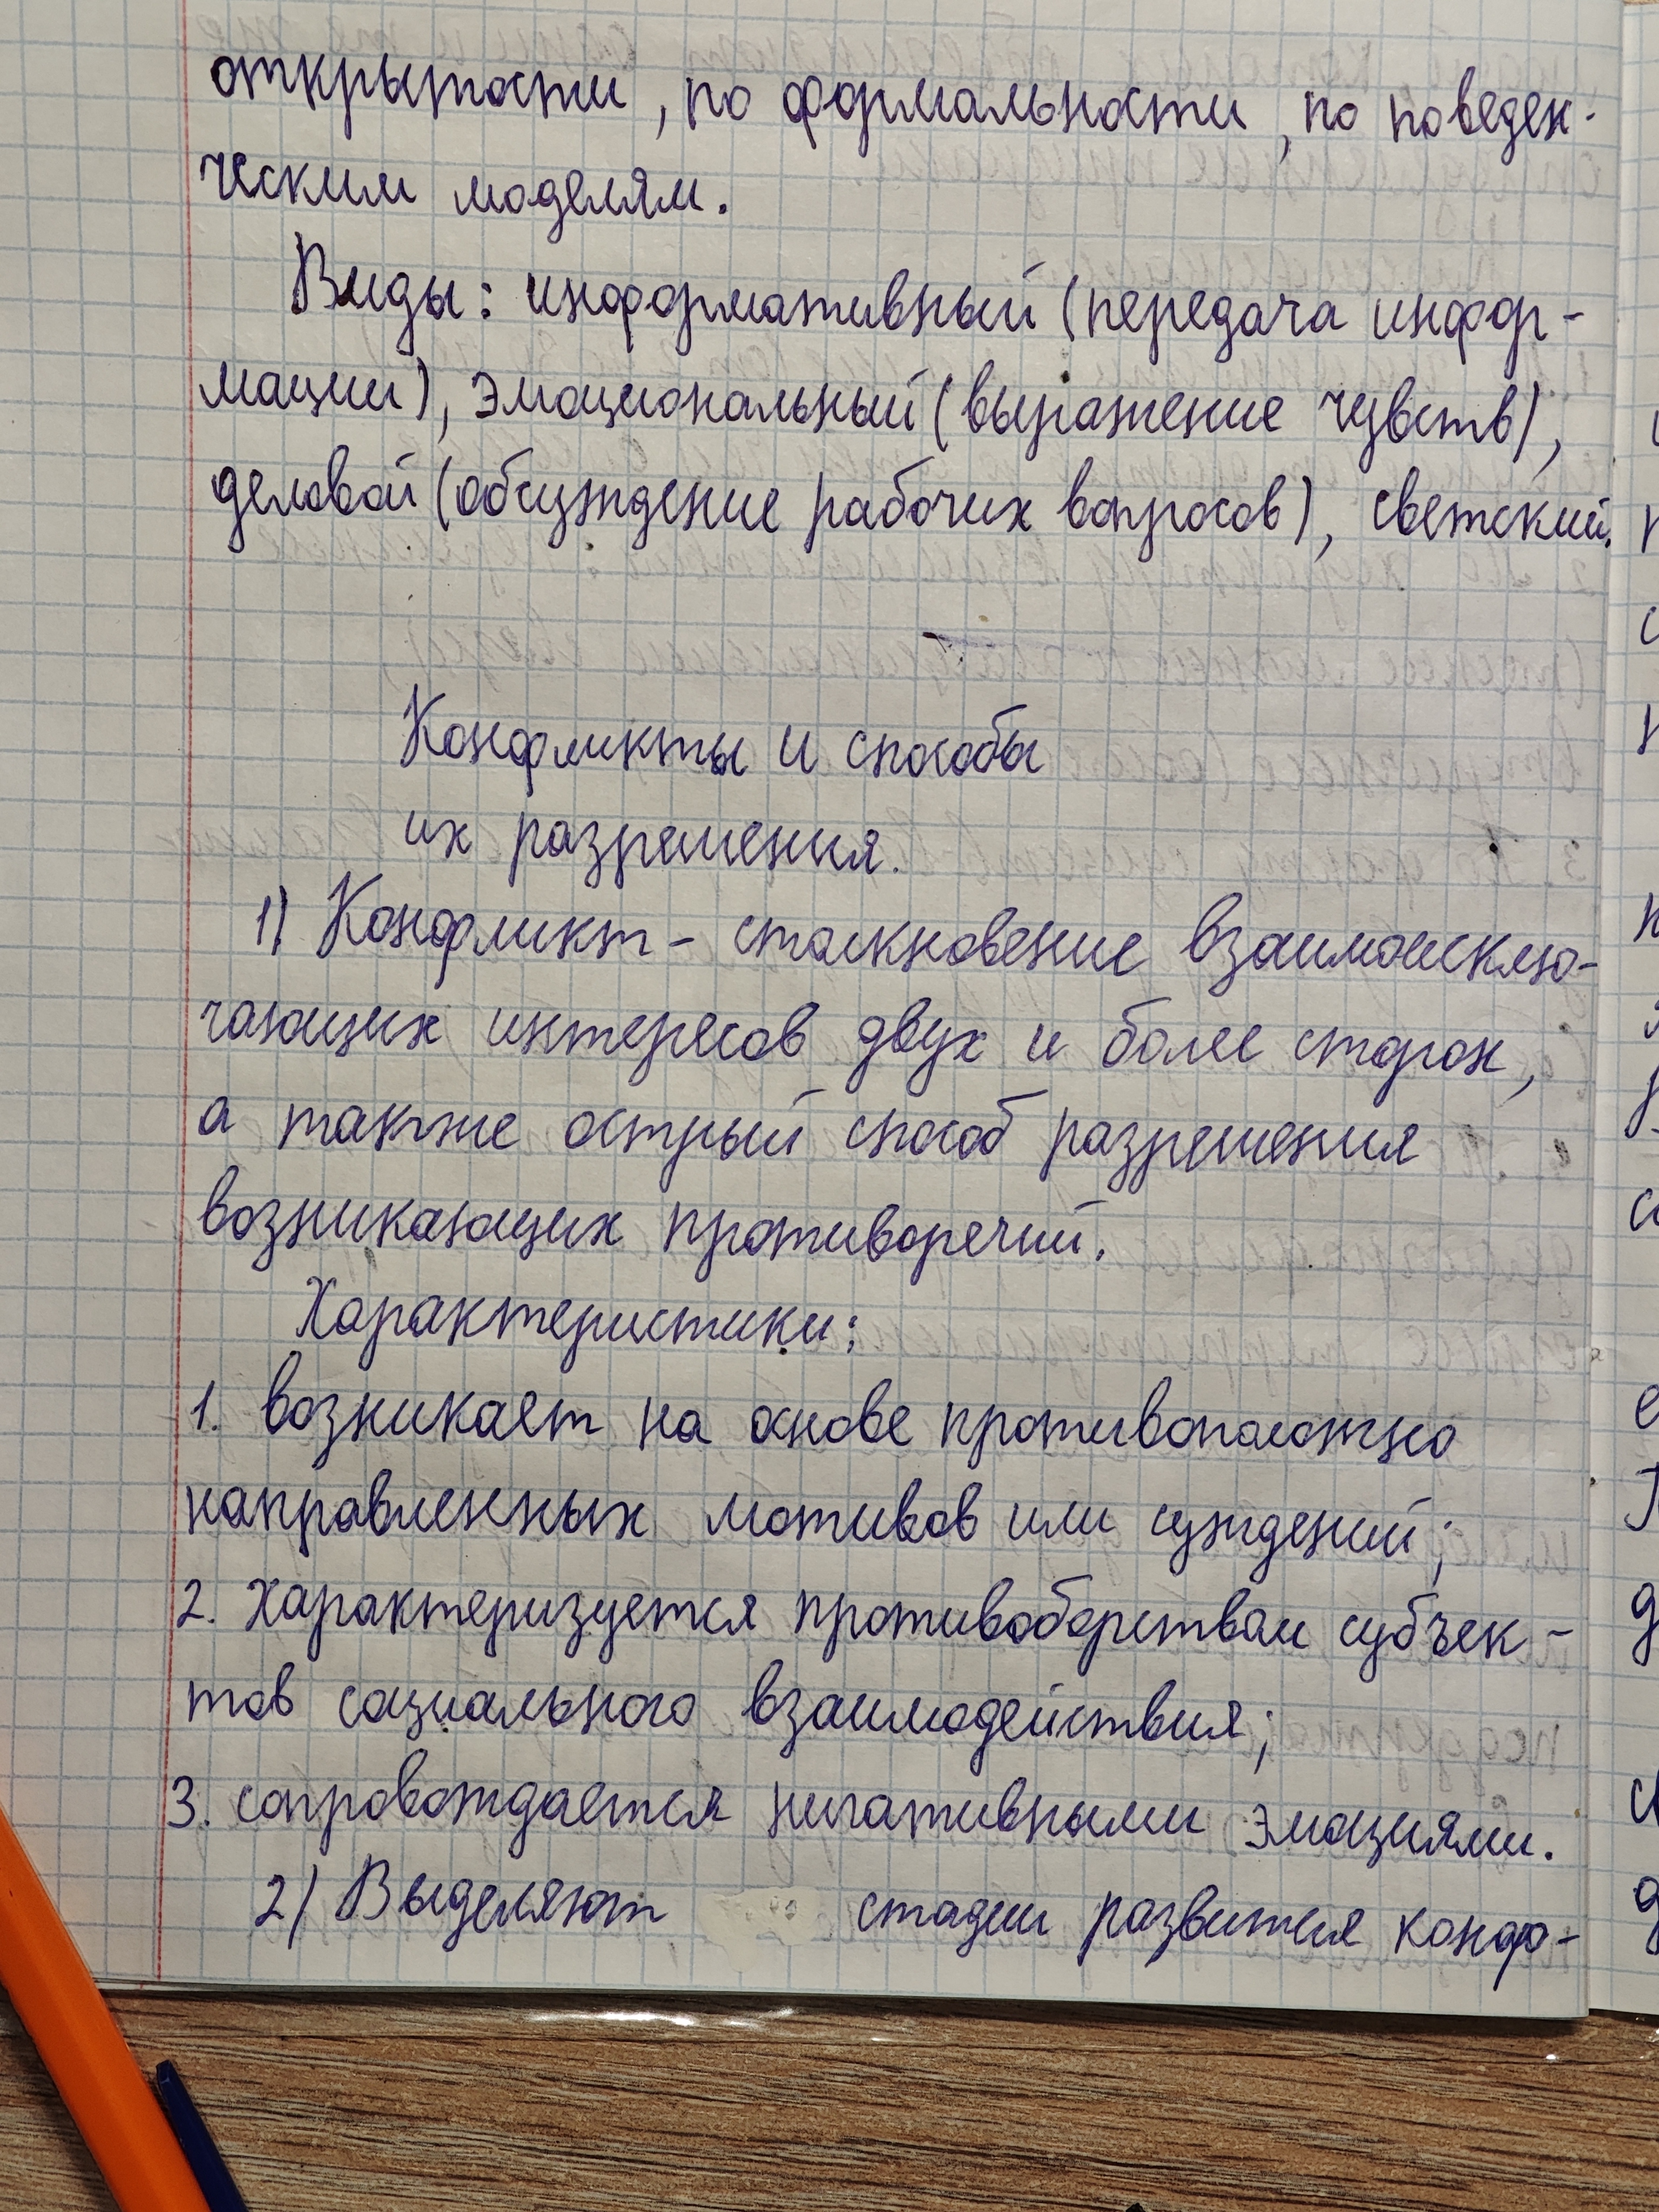 открытости, по формальности, по поведен-
ческим моделям.
Виды: информативный (передача инфор-
мации), эмоциональный (выражение чувств),
деловой (обсуждение рабочих вопросов), светский.
Конфликты и способы
их разрешения.
1) Конфликт - столкновение взаимоисклю-
чающих интересов двух и более сторон,
а также острый способ разрешения
возникающих противоречий.
Характеристики:
1. возникает на основе противоположно
направленных мотивов или суждений;
2. характеризуется противоборством субъек-
тов социального взаимодействия;
3. сопровождается нигативными эмоциями.
2) Выделяют стадии развития конф-